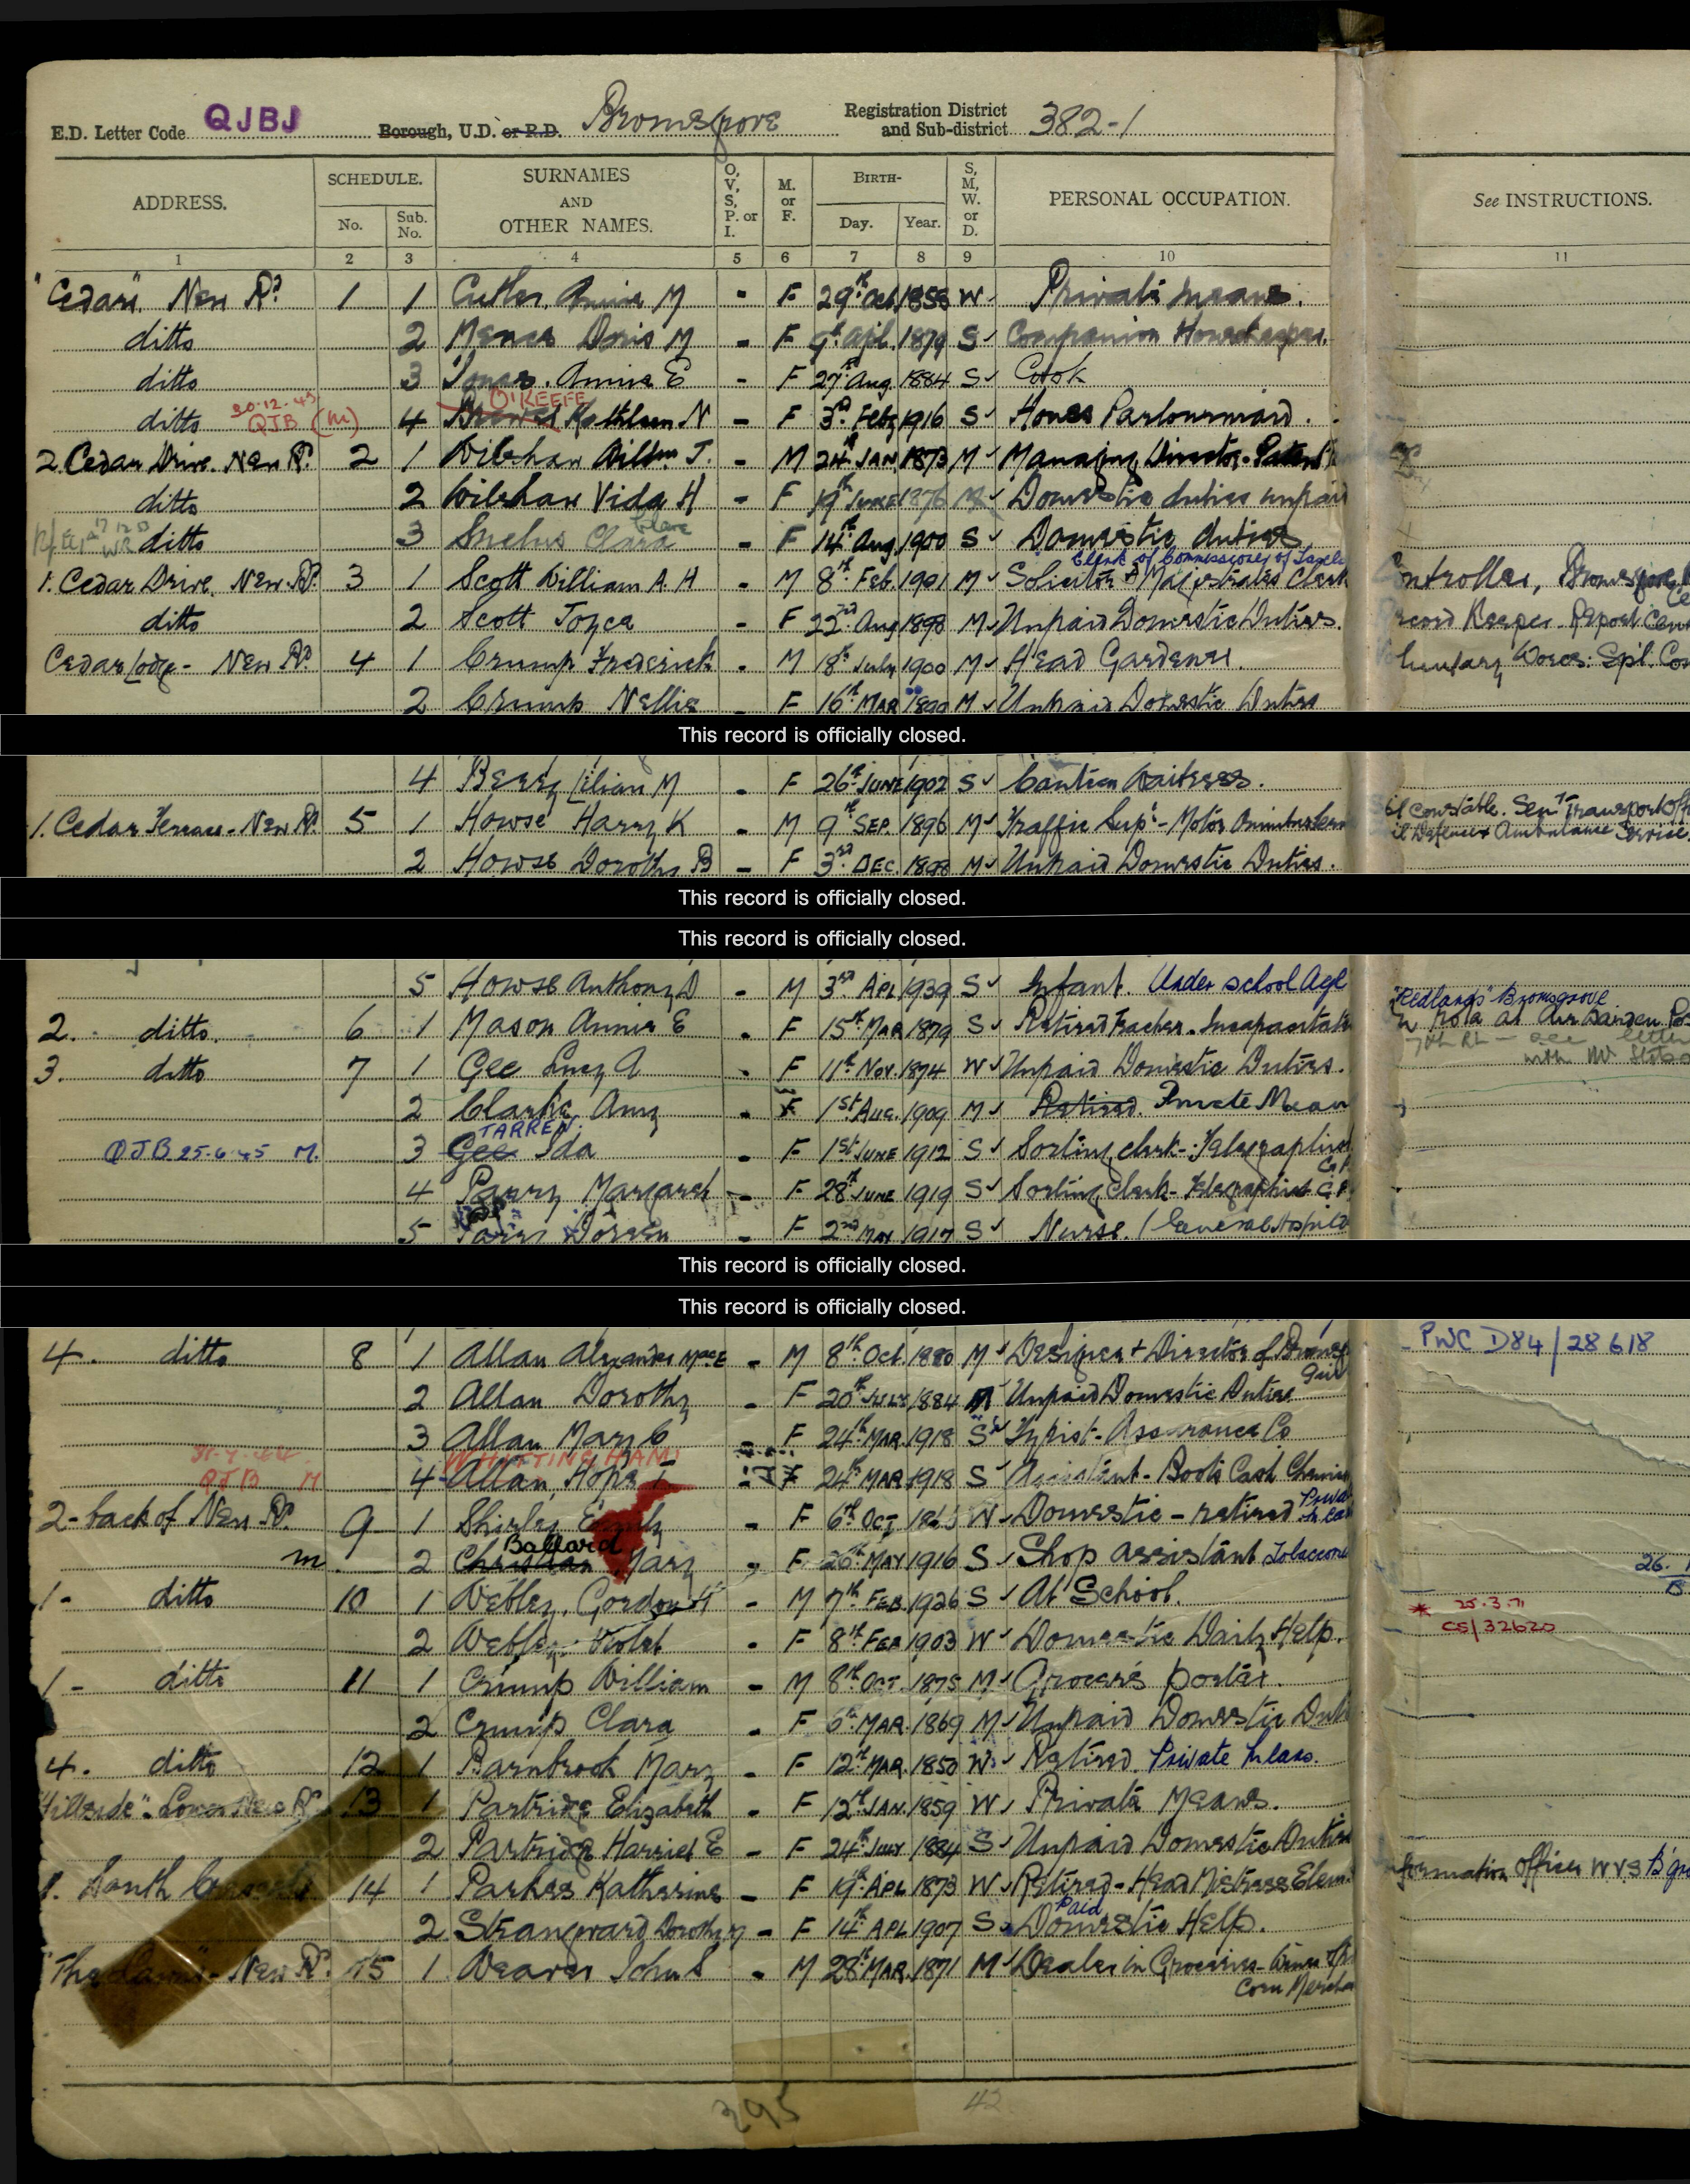 E.D. Letter Code QJBJ Borough, U.D. or R.D. Bromsgrove Registration District and Sub-district 382-1
ADDRESS. SCHEDULE. No. Sub. No. SURNAMES AND OTHER NAMES. O, V, S, P. or I. M. or F. BIRTH- Day. Year. S, M, W. or D. PERSONAL OCCUPATION. See INSTRUCTIONS.
1 2 3 4 5 6 7 8 9 10 11
"Cedars" New Rd. 1 1 Cutler, Annie M - F 29th Oct 1858 W Private means.
ditto 2 Mence Doris M - F 9th apl. 1879 S Companion Housekeeper.
ditto 3 Jones. Annie E - F 27th Aug 1884 S Cook
O'KEEFE
ditto 30.12.43 QJB (M) 4 Kathleen N - F 3rd Feby 1916 S House Parlourmaid.
2. Cedar Drive. New Rd. 2 1 Wilshaw Willm J. - M 24th JAN 1873 M Managing Director - Patent
ditto 2 Wilshaw Vida H - F 19th JUNE 1876 M Domestic duties unpaid
Clara
ditto 3 Snelus Clara - F 14th Aug 1900 S Domestic duties
Clerk of Commissioners of Taxes
1. Cedar Drive, New Rd. 3 1 Scott William A. H - M 8th Feb. 1901 M Solicitor & Magistrates Clerk Controller, Bromsgrove
ditto 2 Scott Joyce F 22nd Aug 1898 M Unpaid Domestic Duties. Record Keeper - Report Cent
Cedar Lodge - New Rd. 4 1 Crump Frederick - M 18th July 1900 M Head Gardener. Voluntary Worcs: Spl. Con
2 Crump Nellie - F 16th MAR 1899 M Unpaid Domestic Duties
This record is officially closed.
4 Berry Lilian M - F 26th JUNE 1902 S Canteen Waitress.
1. Cedar Terrace - New Rd. 5 1 Howse Harry K - M 9th SEP. 1896 M Traffic Supt - Motor Omnibus Spl Constable. Senr Transport Off
Civil Defence & Ambulance Service.
2 Howse Dorothy B - F 3rd DEC. 1898 M Unpaid Domestic Duties.
This record is officially closed.
This record is officially closed.
5 Howse Anthony D - M 3rd APL 1939 S Infant. Under school Age
"Redlands" Bromsgrove
2. ditto. 6 1 Mason Annie E - F 15th MAR 1879 S Retired Teacher - Incapacitated
3. ditto 7 1 Gee Lucy A - F 11th Nov. 1874 W Unpaid Domestic Duties.
2 Clarke Amy - F 1st AUG. 1909 M Retired. Private Mean
TARREN.
QJB 25.6.45 M. 3 Gee Ida - F 1st JUNE 1912 S Sorting Clerk - Telegraphist
4 Parry Margaret - F 28th JUNE 1919 S Sorting Clerk - Telegraphist
5 Doreen - F 2nd MAY 1917 S Nurse. / General Hospital
This record is officially closed.
This record is officially closed.
4. ditto 8 1 Allan Alexander MacE - M 8th Oct 1880 M Designer & Director of Bromsg Guil PWC D84/28618
2 Allan Dorothy - F 20th JULY 1884 M Unpaid Domestic Duties
3 Allan Mary C F 24th MAR. 1918 S Typist - Assurance Co
WHITTINGHAM
QJB M 4 Allan, Hope F. F 24th MAR 1918 S Assistant - Boots Cash Chemist
2 - back of New Rd. 9 1 Shirley Emily - F 6th OCT W Domestic - retired
Ballard
m 2 Christian Mary - F 26th MAY 1916 S Shop assistant Tobacconi
1 - ditto 10 1 Webley, Gordon H - M 7th FEB. 1926 S At School.
25.3.71
2 Webley Violet - F 8th FEB 1903 W Domestic Daily Help. CS/32620
1 - ditto 11 1 Crump William - M 8th OCT. 1875 M Grocer's porter.
2 Crump Clara - F 6th MAR. 1869 M Unpaid Domestic Duti
4. ditto 12 1 Barnbrook Mary - F 12th MAR. 1850 W Retired. Private Means.
"Hillside" - Lower New Rd. 13 1 Partridge Elizabeth - F 12th JAN. 1859 W Private Means.
2 Partridge Harriet E - F 24th July 1884 S Unpaid Domestic Duties
1. South Crescent 14 1 Parkes Katherine - F 19th APL 1873 W Retired - Head Mistress Elem. Information Officer WVS B'gro
Paid
2 Strangward Dorothy - F 14th APL 1907 S Domestic Help.
"The Lawns" - New Rd. 15 1 Weaver John S - M 28th MAR. 1871 M Dealer in Groceries - Wines
Corn Mercha
295 42